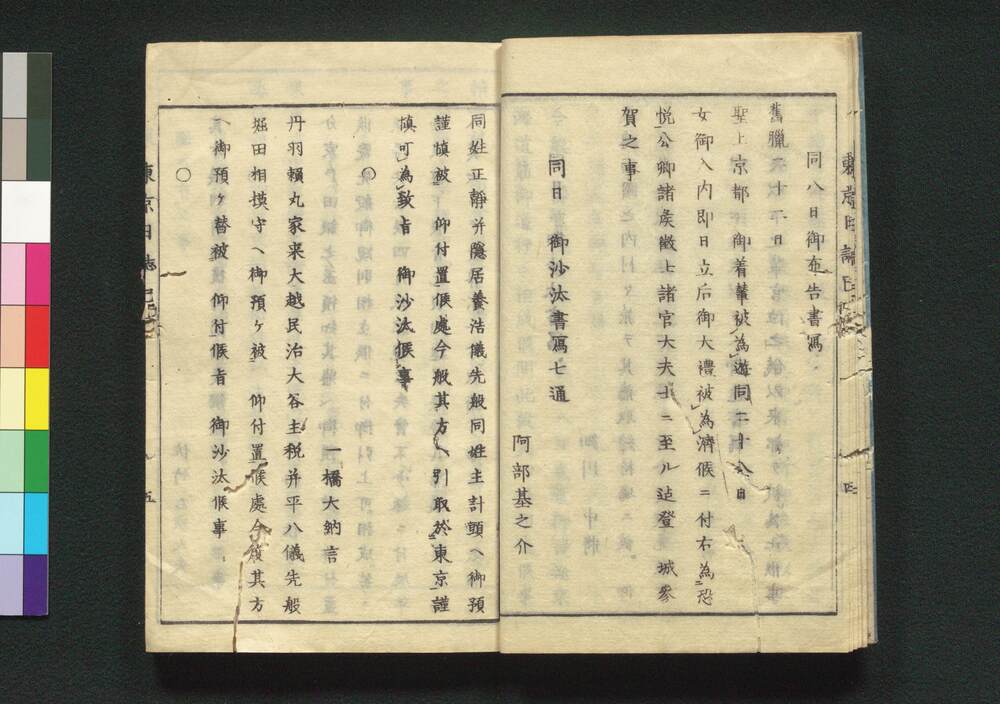 同八日御布告書寫
舊臘二十二日
聖上京都ヘ御着輦被為遊同二十八日
女御入內即日立后御大禮被為濟候ニ付右為恐
悅公卿諸矦徵士諸官大夫士ニ至ル迠登 城參
賀之事
同日 御沙汰書寫七通
阿部基之介
同姓正靜并隱居養浩儀先般同姓主計頭ヘ御預
謹愼被 仰付置候處今般其方ヘ引取於東京謹
愼可為致旨 御沙汰候事
○
一橋大納言
丹羽賴丸家来大越民治大谷主税并平八儀先般
堀田相摸守ヘ御預ヶ被 仰付置候處今度其方
ヘ御預ヶ替被 仰付候旨 御沙汰候事
○
東京日誌
五